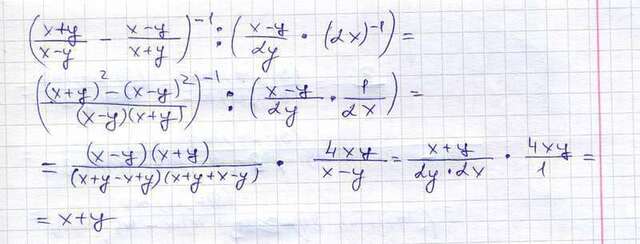 ((x+y)/(x-y) - (x-y)/(x+y))⁻¹ : ((x-y)/(2y) · (2x)⁻¹) =
(((x+y)² - (x-y)²)/((x-y)(x+y)))⁻¹ : ((x-y)/(2y) · 1/(2x)) =
= ((x-y)(x+y))/((x+y-x+y)(x+y+x-y)) · (4xy)/(x-y) = (x+y)/(2y·2x) · (4xy)/1 =
= x+y